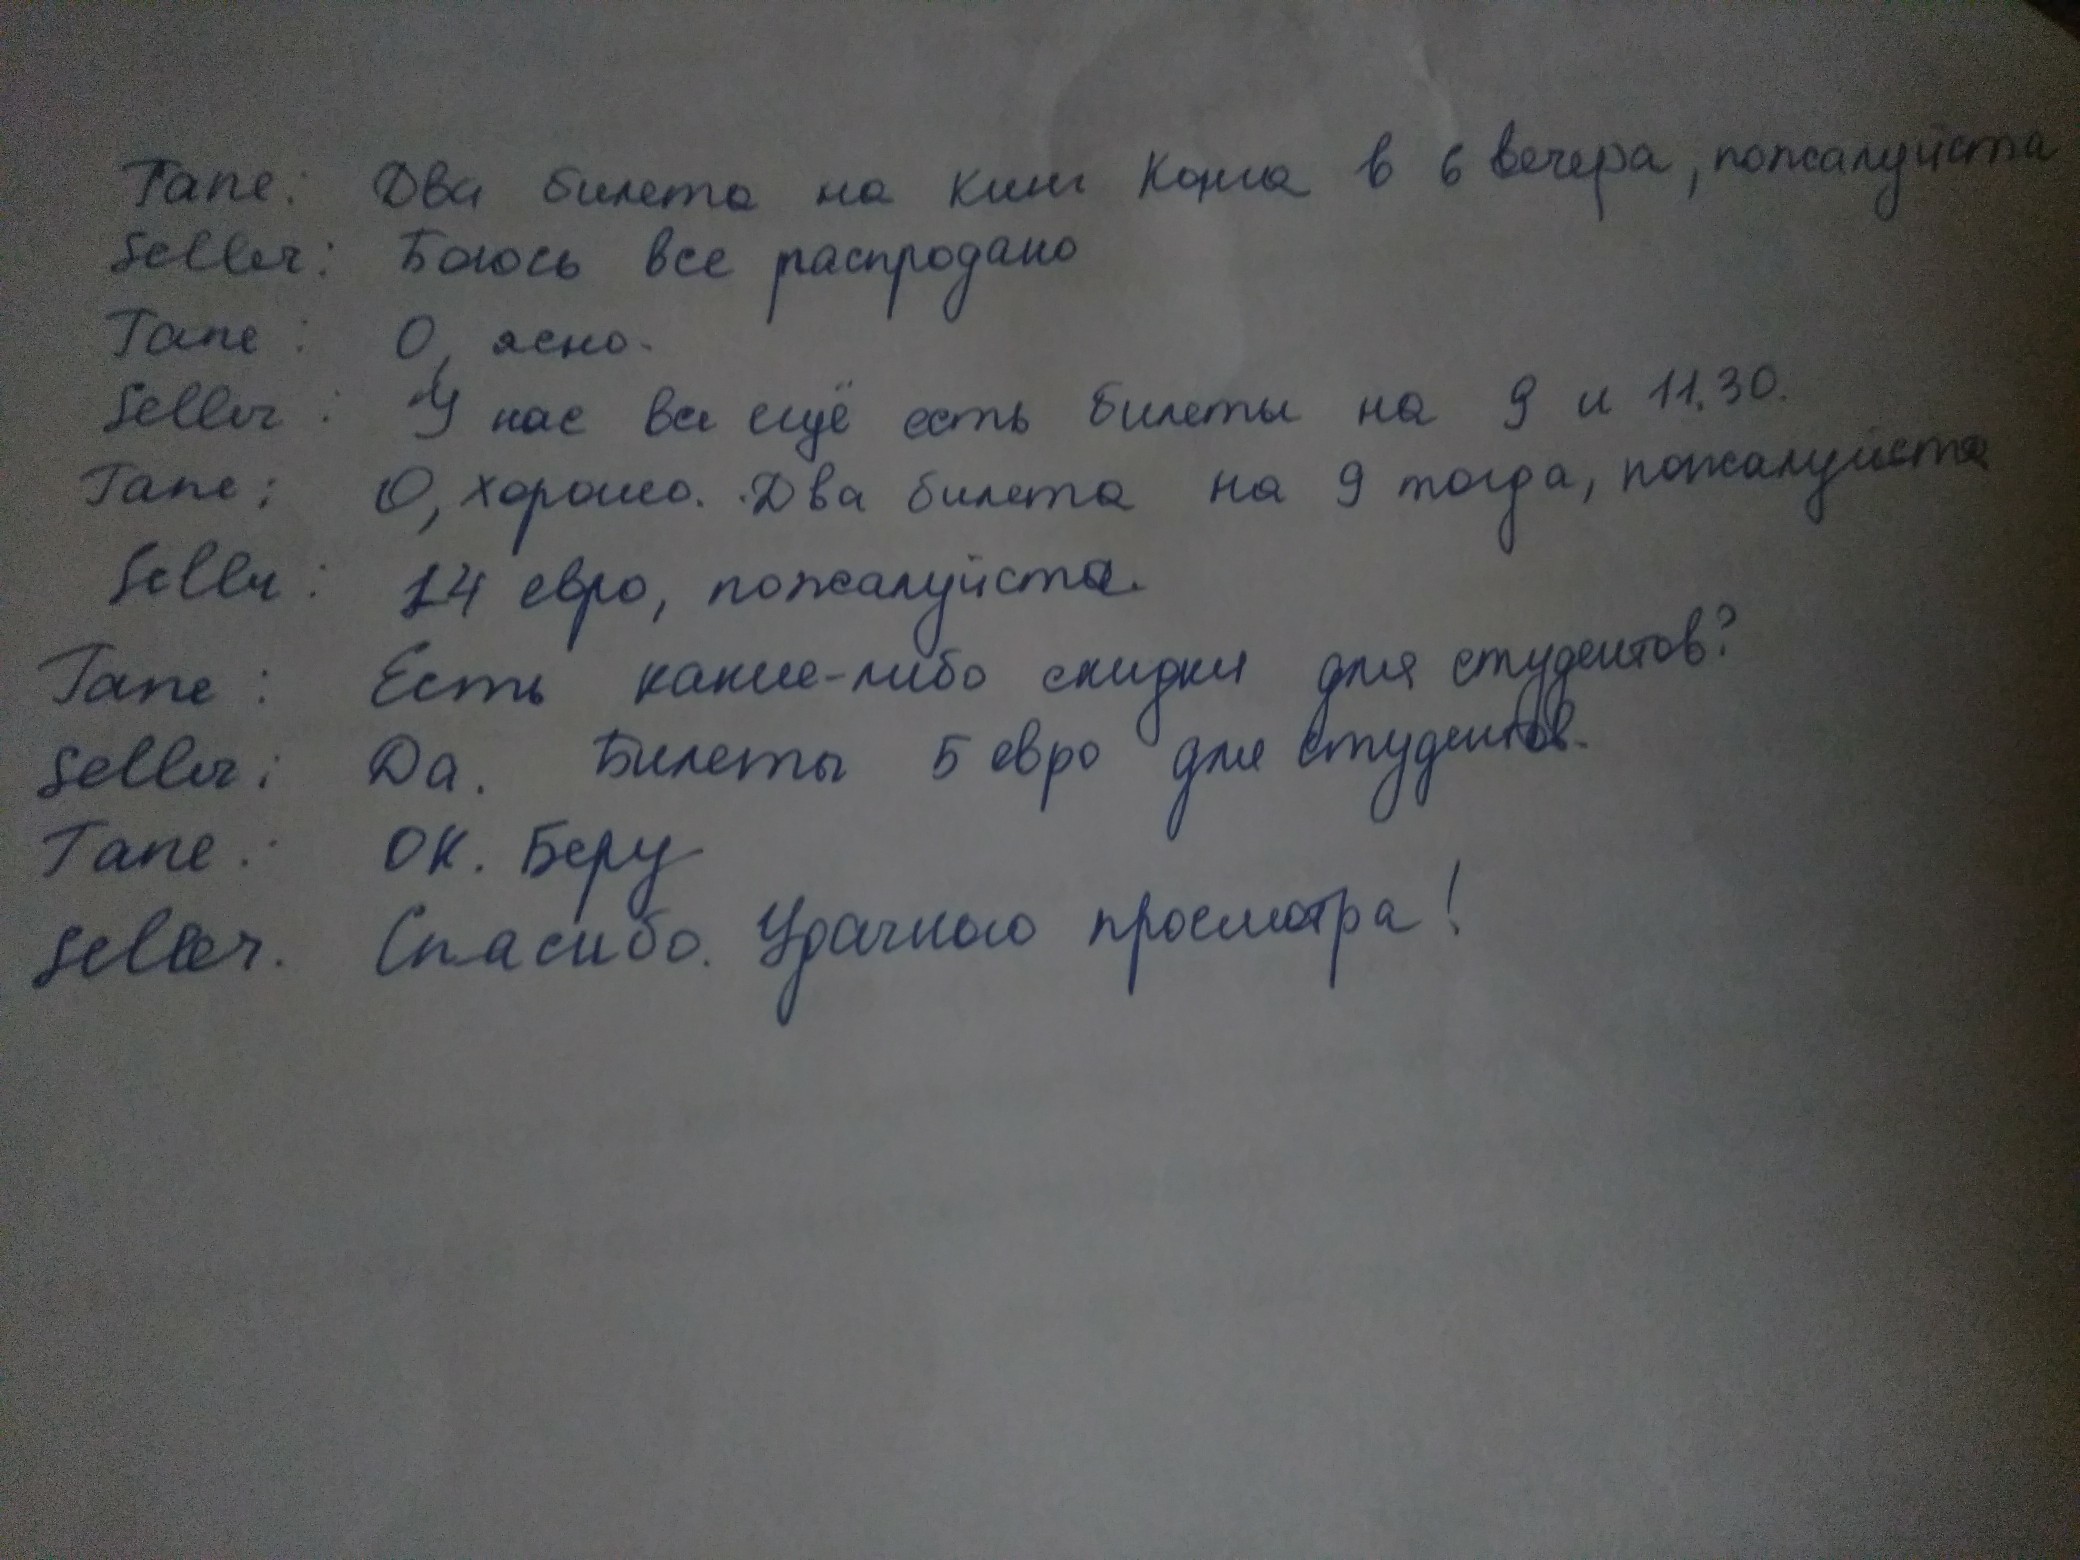 Jane: Два билета на Кинг Конга в 6 вечера, пожалуйста
Seller: Боюсь все распродано
Jane: О, ясно.
Seller: У нас все ещё есть билеты на 9 и 11.30.
Jane: О, хорошо. Два билета на 9 тогда, пожалуйста
Seller: 14 евро, пожалуйста.
Jane: Есть какие-либо скидки для студентов?
Seller: Да. Билеты 5 евро для студентов.
Jane: ОК. Беру
Seller. Спасибо. Удачного просмотра!